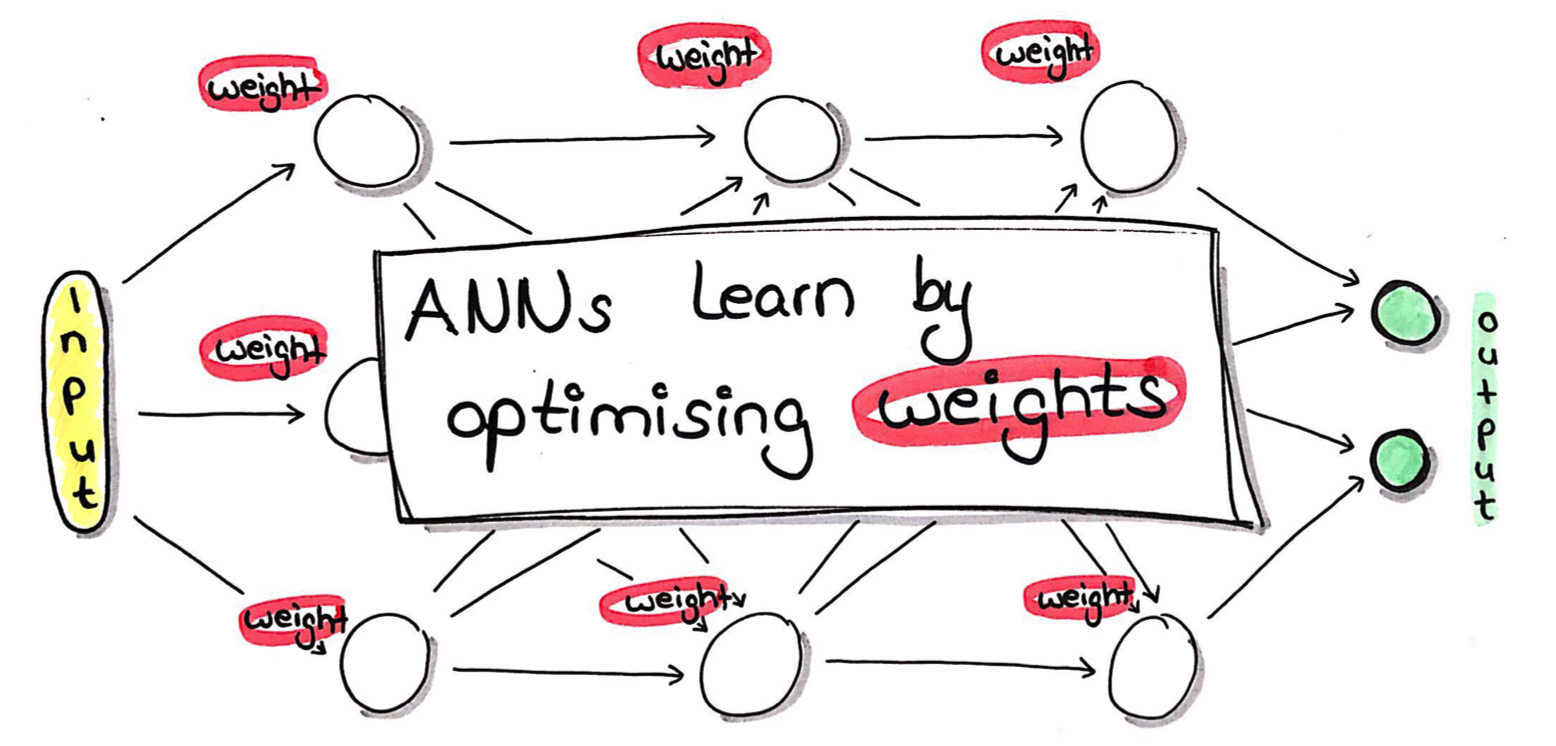 weight
weight
weight
Input
weight
ANNs Learn by
optimising weights
output
weight
weight
weight